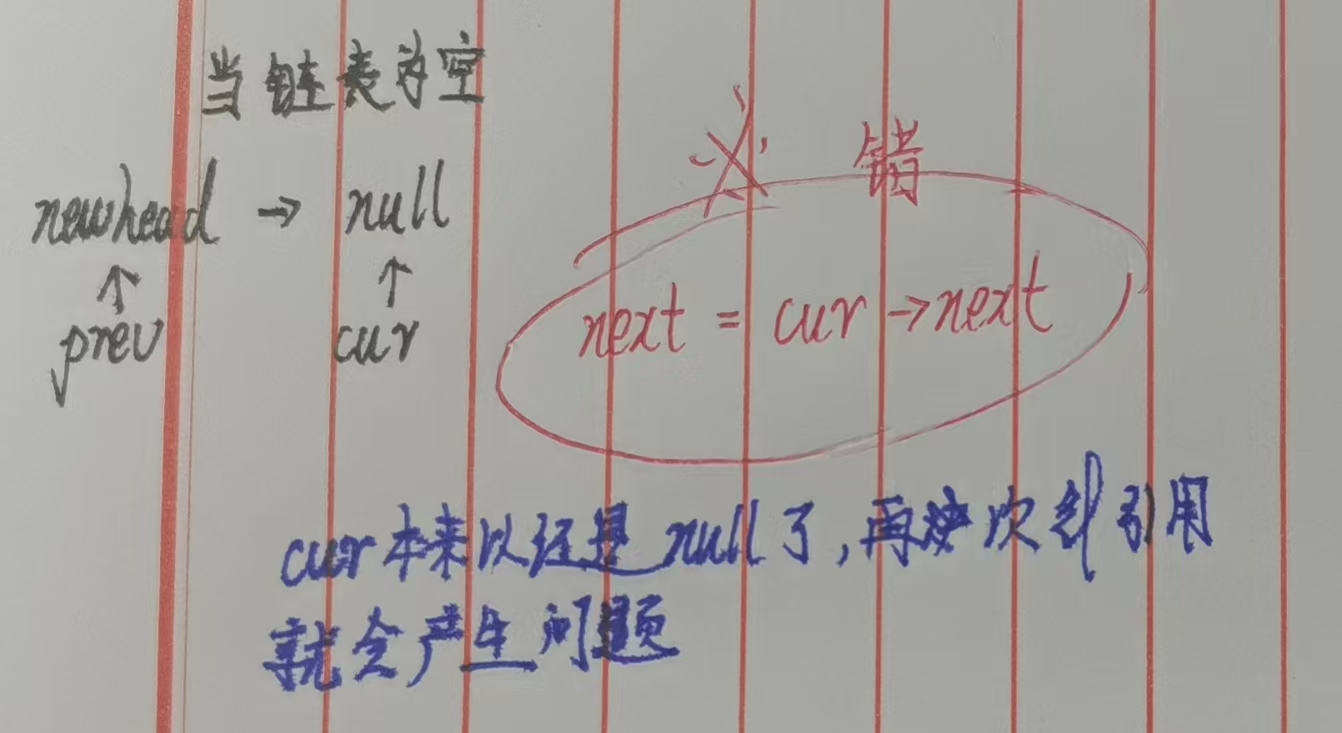 当链表为空
newhead → null
↑ ↑
prev cur
× 错
next = cur → next
cur本来以经是null了,再次引用
就会产生问题